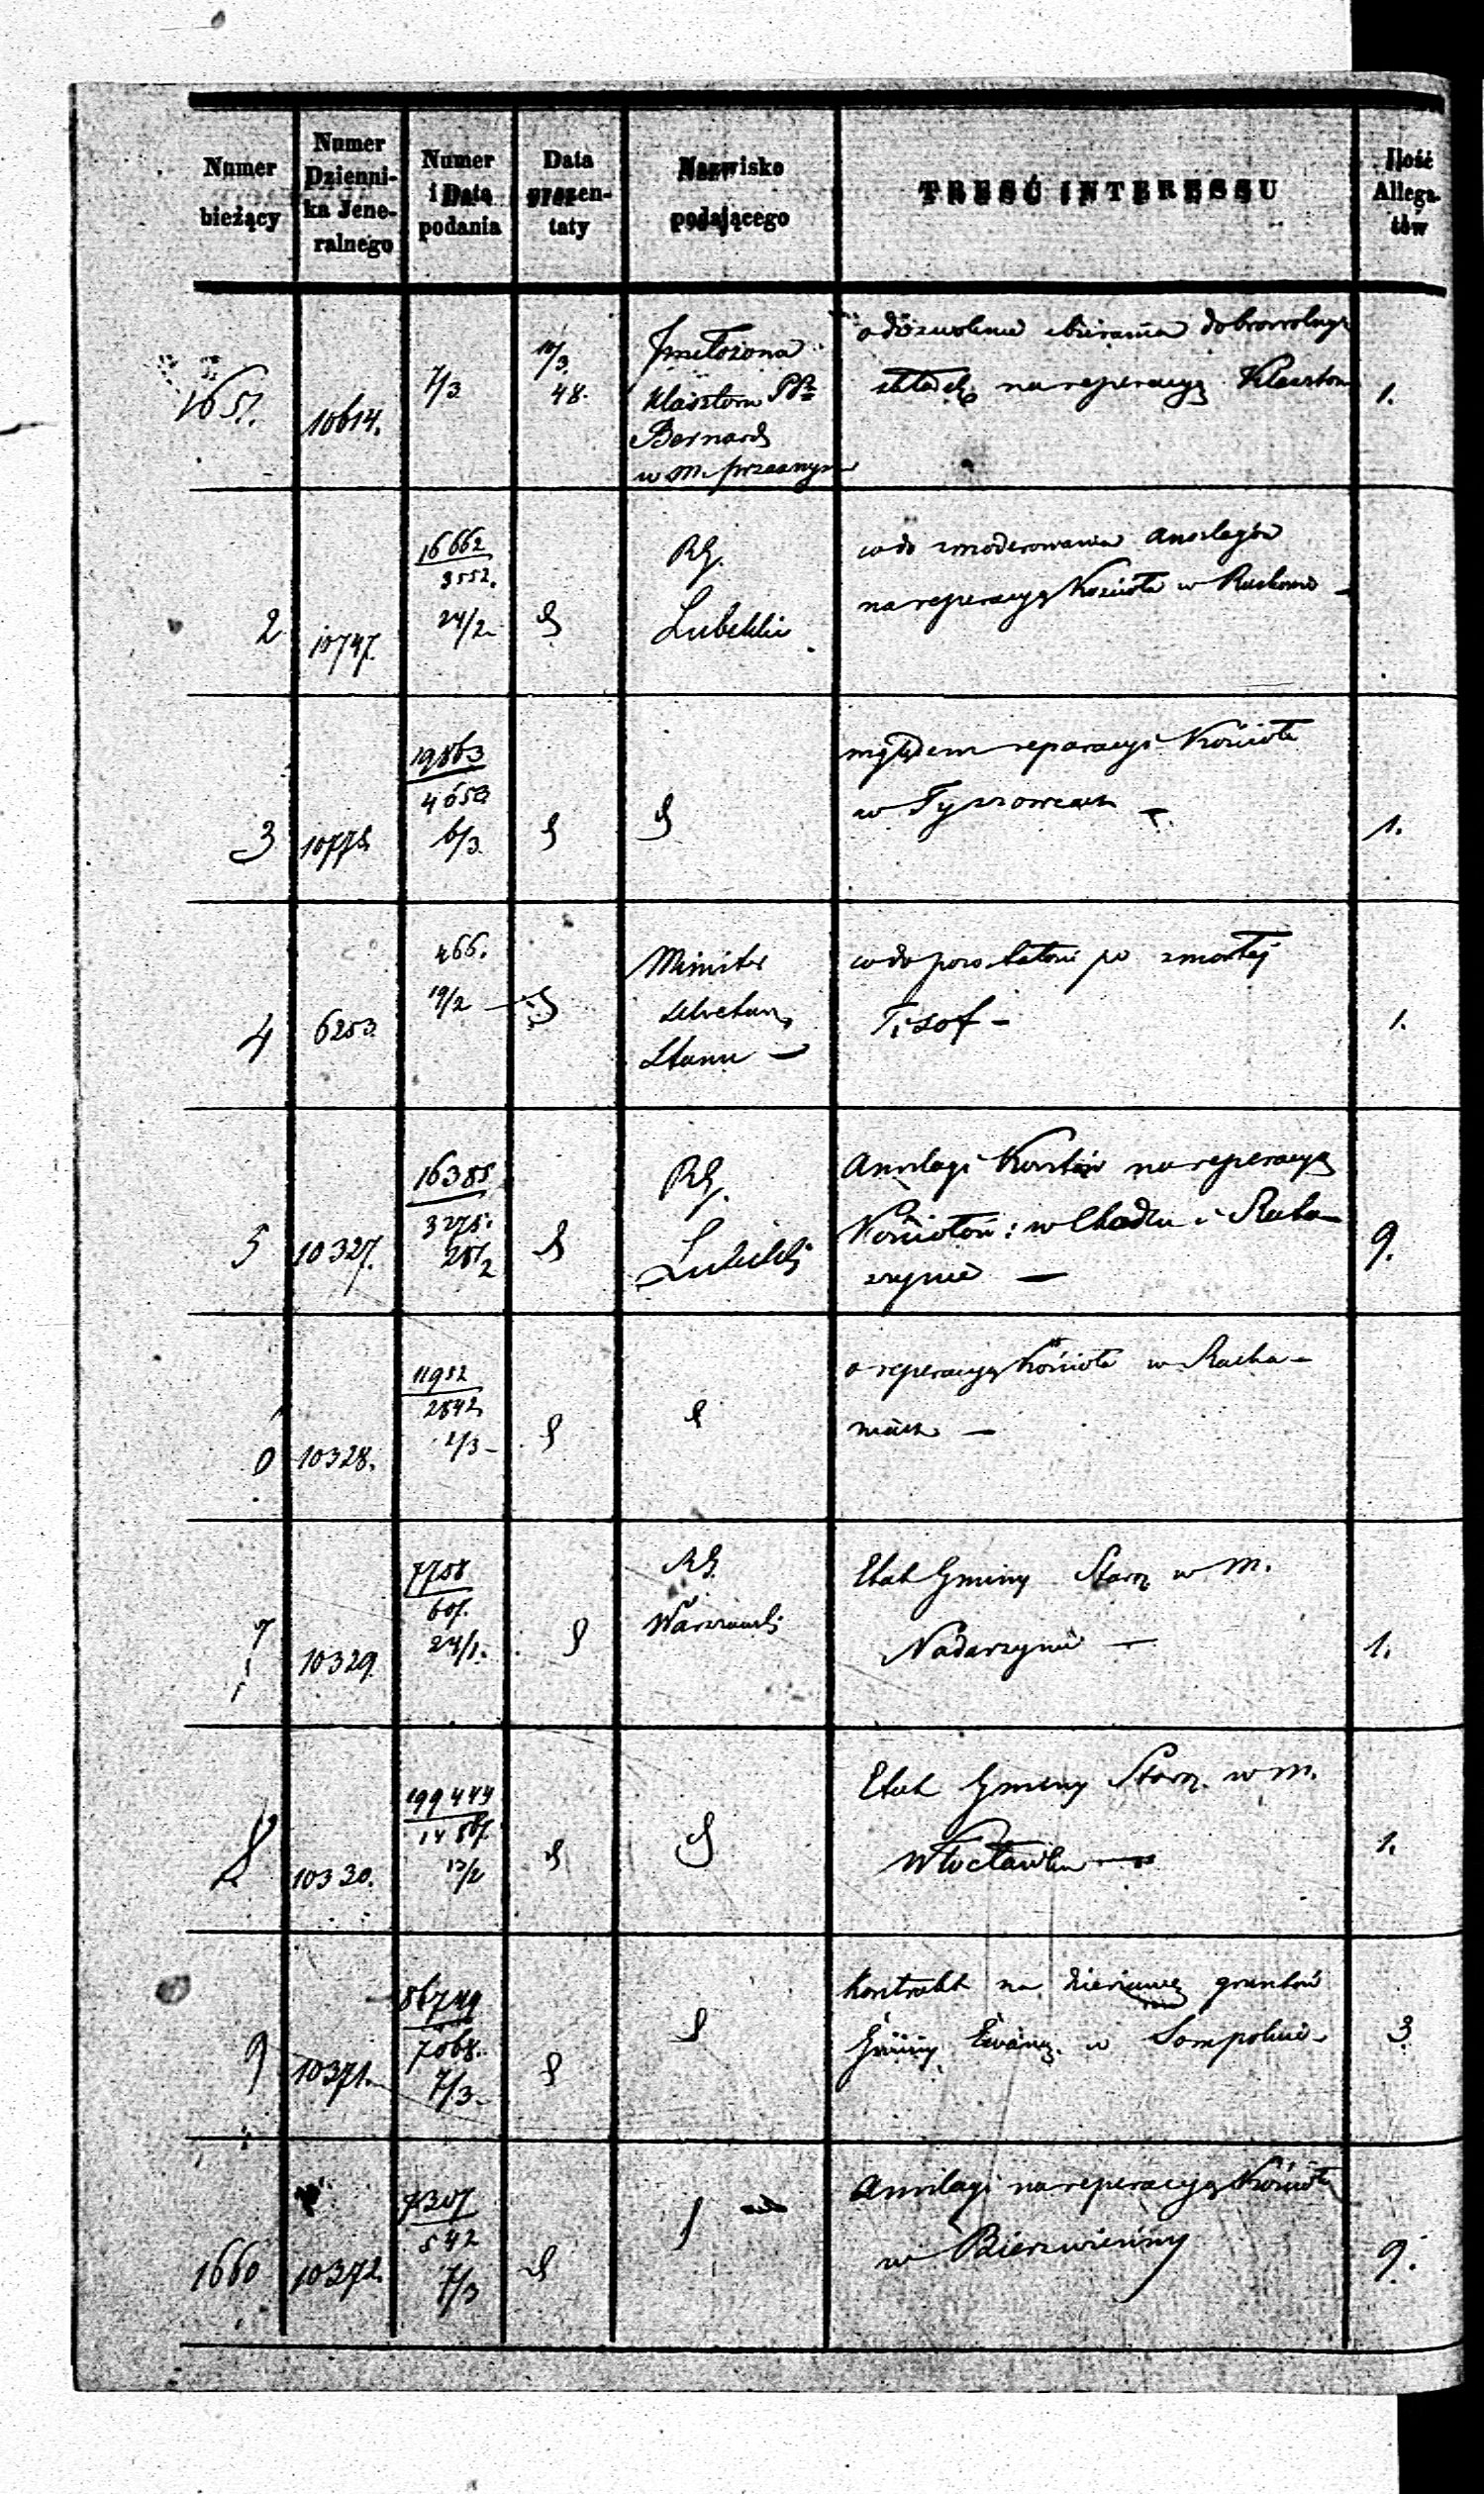 Numer bieżący
Numer Dzienni-
ka Jene-
ralnego
Numer i Data podania
Data prezen-
taty
Nazwisko podającego
TREŚĆ INTERESSU
Ilość Allega-
tów
1651. 10614. 7/3 10/3 48.
Przełożona
Klasztoru PP.
Bernard
w m.
o dozwolenie zbierania dobrowolnych
składek na reperacyą Klasztoru
1.
2 10747. 16662
3552.
24/2
RG.
Lubelski
co do zmoderowania Anszlagów
na reperacyą Kościoła w
3 10778 19863
4653
6/3
względem reparacyi Kościoła
w Tyszowcach
1.
4 6253. 466.
19/2
Minister
Sekretarz
Stanu
co do pozostałości po zmarłej
1.
5 10327. 16385
3275.
25/2
RG.
Lubelski
Anszlagi Kosztów na reperacyą
Kościołów: w Chodlu i
9.
6 10328. 11952
2842
2/3
o reperacyą Kościoła w Racha-
niach
7 10329. 7758
607.
24/1.
RG.
Warszawski
Etat Gminy Staroz. w m.
Nadarzynie
1.
8 10330. 199444
1487.
12/2
Etat Gminy Staroz. w m.
Włocławku
1.
9 10371. 86749
7068.
7/3
Kontrakt na dzierżawę gruntów
Gminy Ewang. w Sompolnie
3
1660 10372. 7307
542
7/3
Anszlagi na reperacyą Kościoła
w Bierzwienny
9.